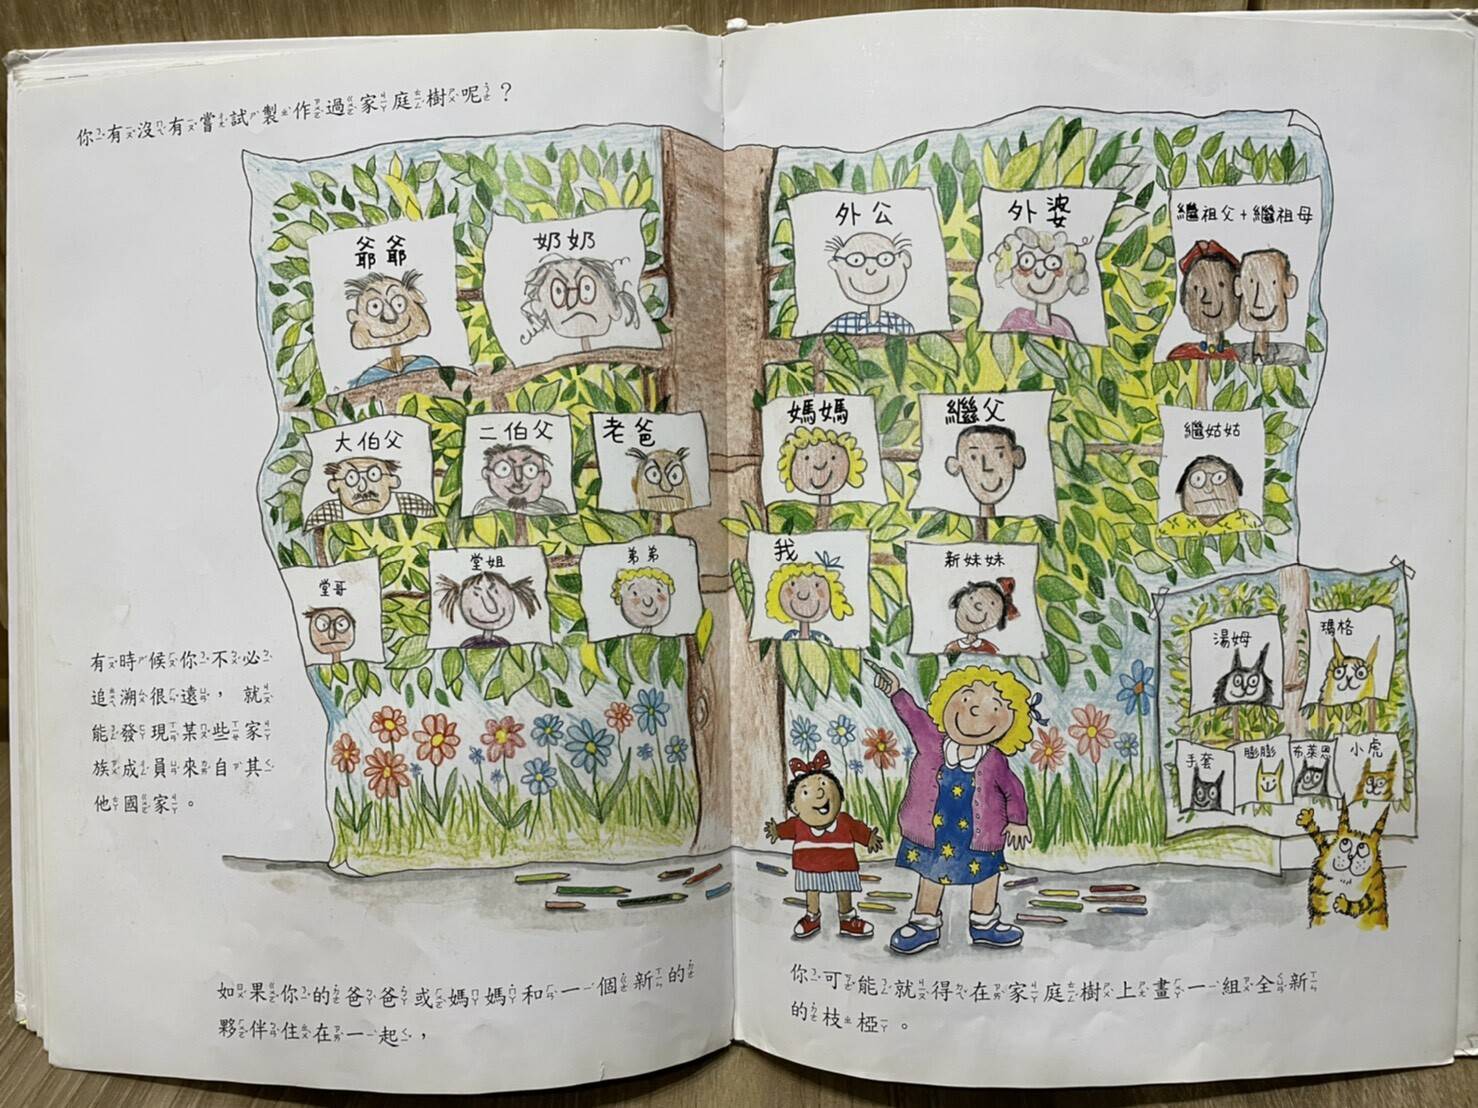 你有沒有嘗試製作過家庭樹呢？
爺爺
奶奶
外公
外婆
繼祖父+繼祖母
大伯父
二伯父
老爸
媽媽
繼父
繼姑姑
堂哥
堂姐
弟弟
我
新妹妹
湯姆
瑪格
手套
膨膨
布萊恩
小虎
有時候你不必
追溯很遠，就
能發現某些家
族成員來自其
他國家。
如果你的爸爸或媽媽和一個新的
夥伴住在一起，
你可能就得在家庭樹上畫一組全新
的枝椏。